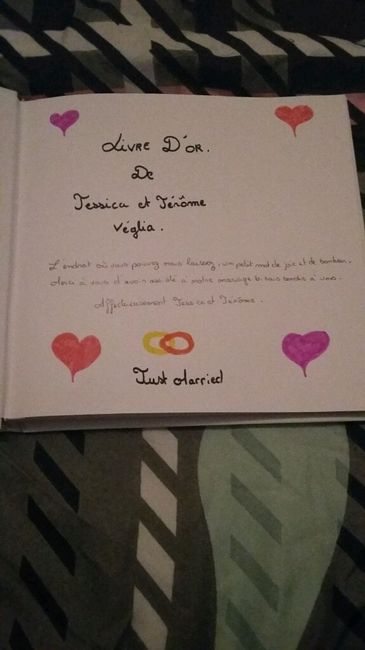 Livre D'or.
De
Jessica et Jérôme
Véglia.
L'endroit où vous pouvez nous laissez, un petit mot de joie et de bonheur.
Merci à vous d'avoir assisté à notre mariage bisous tendre à vous.
Affectueusement Jessica et Jérôme.
Just Married